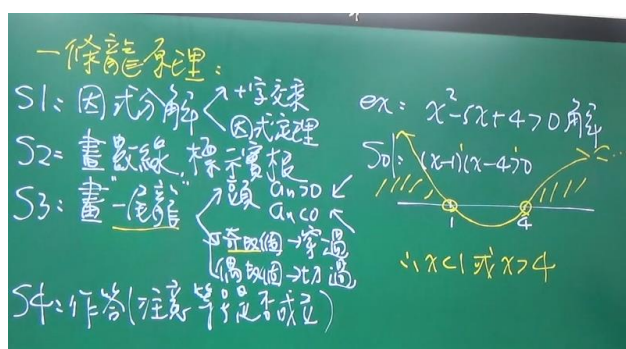 一條龍原理：
S1：因式分解 十字交乘
因式定理
S2：畫數線，標示實根
S3：畫"一尾龍" 頭 an>0 ↙
an<0 ↖
奇數個→穿過
偶數個→切過
S4：作答(注意等號是否成立)
ex： x²-5x+4>0 解
Sol： (x-1)(x-4)>0
1 4
∴x<1 或 x>4